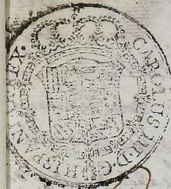 CAROLUS III D G HISPANIAR REX